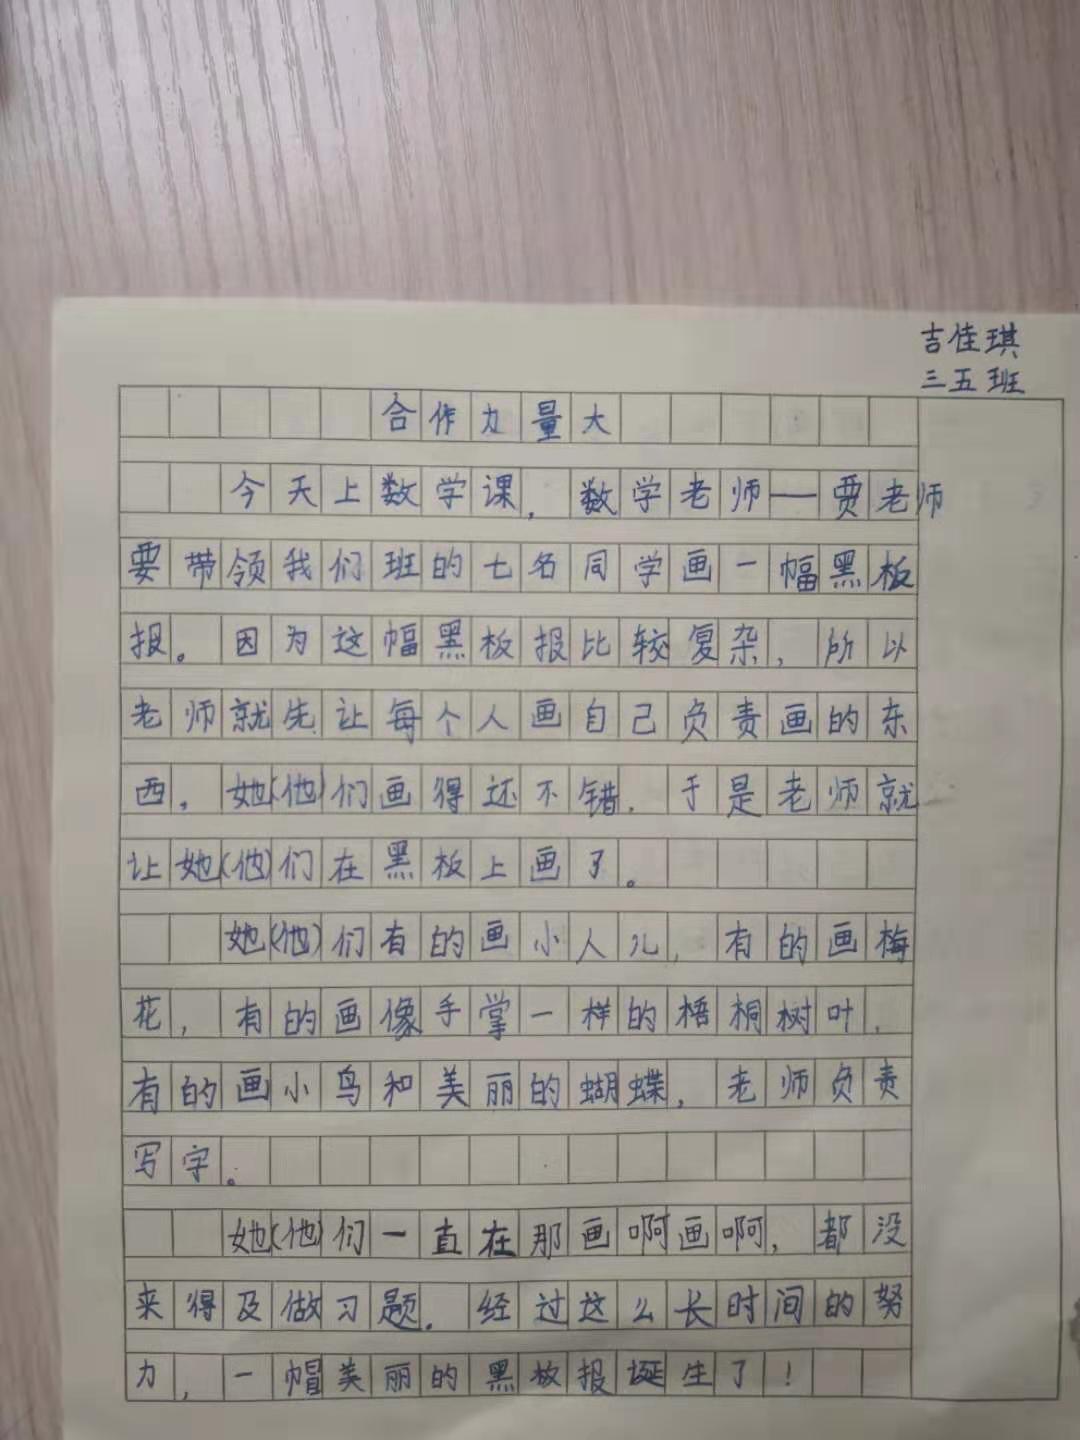 吉佳琪
三五班
合作力量大
今天上数学课,数学老师——贾老师
要带领我们班的七名同学画一幅黑板
报。因为这幅黑板报比较复杂,所以
老师就先让每个人画自己负责画的东
西。她(他)们画得还不错.于是老师就
让她(他)们在黑板上画了。
她(他)们有的画小人儿,有的画梅
花,有的画像手掌一样的梧桐树叶,
有的画小鸟和美丽的蝴蝶,老师负责
写字。
她(他)们一直在那画啊画啊,都没
来得及做习题.经过这么长时间的努
力,一帽美丽的黑板报诞生了!